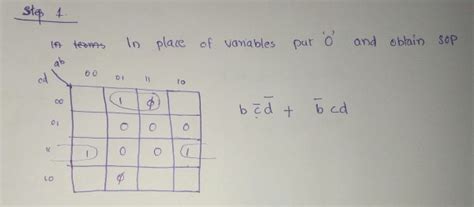 Step 1.
In terms In place of variables put '0' and obtain SOP
ab
cd 00 01 11 10
00 1 ϕ
01 0 0 0
11 1 0 0 1
10 ϕ
b c̅ d̅ + b̅ c d